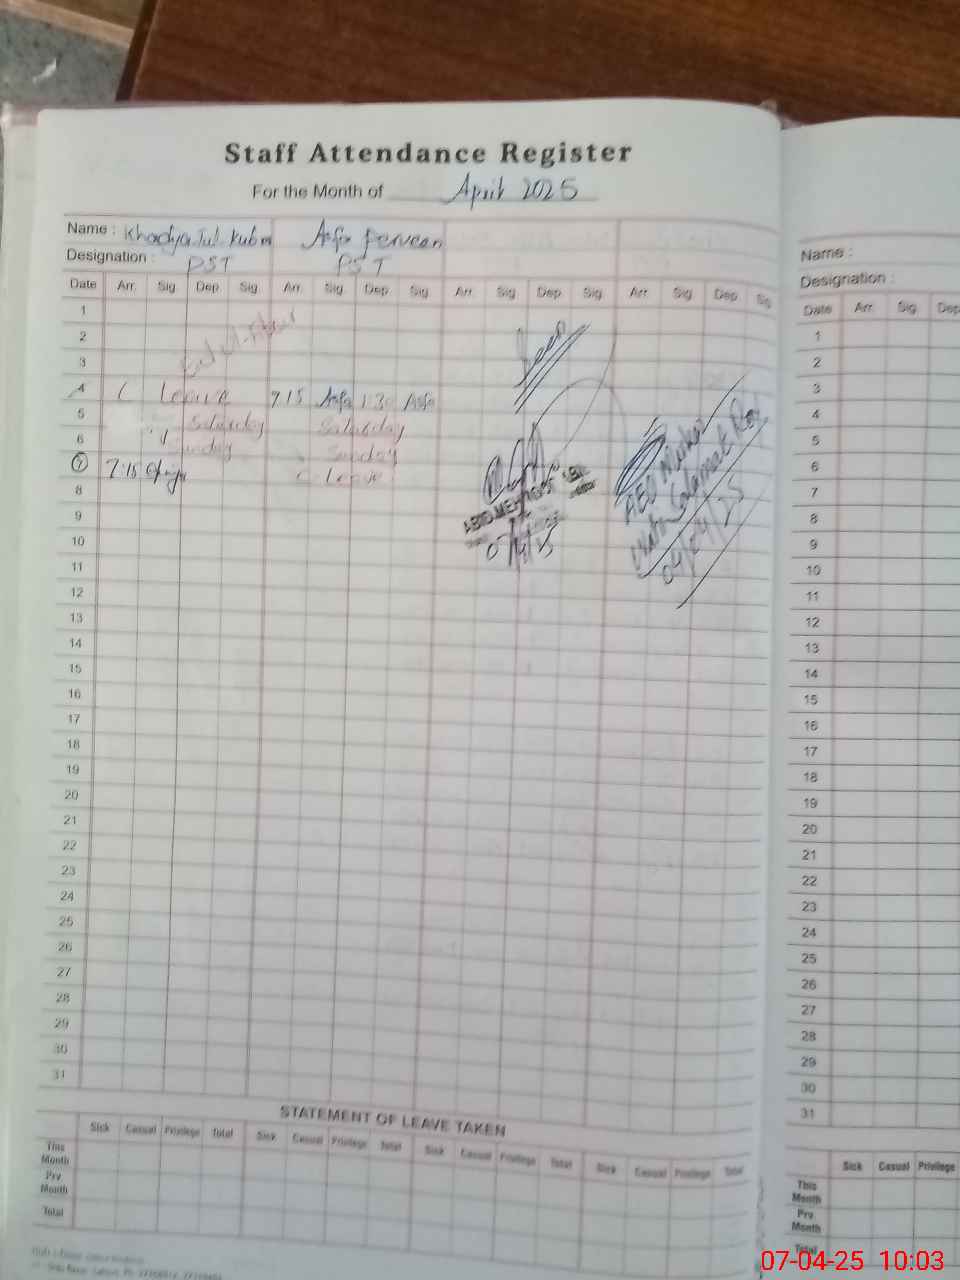 Staff Attendance Register
For the Month of April 2025
Name : Khadyja Tul Kubra Asfa Perveen
Designation : PST PST
Date Arr. Sig. Dep. Sig. Arr. Sig. Dep. Sig. Arr. Sig. Dep. Sig. Arr. Sig. Dep. Sig.
1
2
3
Seen
4 C Leave 7.15 Asfa 1.30 Asfa
5 Saturday Saturday
6 Sunday Sunday
7 7:15 C Leave
8
9
10
11
12
13
14
15
16
17
18
19
20
21
22
23
24
25
26
27
28
29
30
31
AEO
04/04/25
STATEMENT OF LEAVE TAKEN
Sick Casual Privilege Total Sick Casual Privilege Total Sick Casual Privilege Total Sick Casual Privilege Total
This Month
Prv Month
Total
Name :
Designation :
Date Arr. Sig. Dep
1
2
3
4
5
6
7
8
9
10
11
12
13
14
15
16
17
18
19
20
21
22
23
24
25
26
27
28
29
30
31
Sick Casual Privilege
This Month
Prv Month
Total
07-04-25 10:03